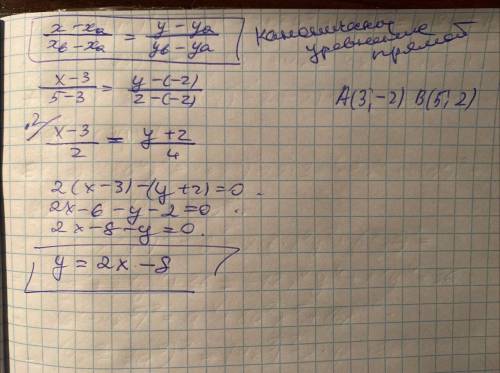 x - xₐ / xᵦ - xₐ = y - yₐ / yᵦ - yₐ
каноническое
уравнение
прямой
x-3 / 5-3 = y-(-2) / 2-(-2)
A(3; -2) B(5; 2)
x-3 / 2 = y+2 / 4
2(x-3)-(y+2)=0.
2x-6-y-2=0.
2x-8-y=0.
y = 2x - 8